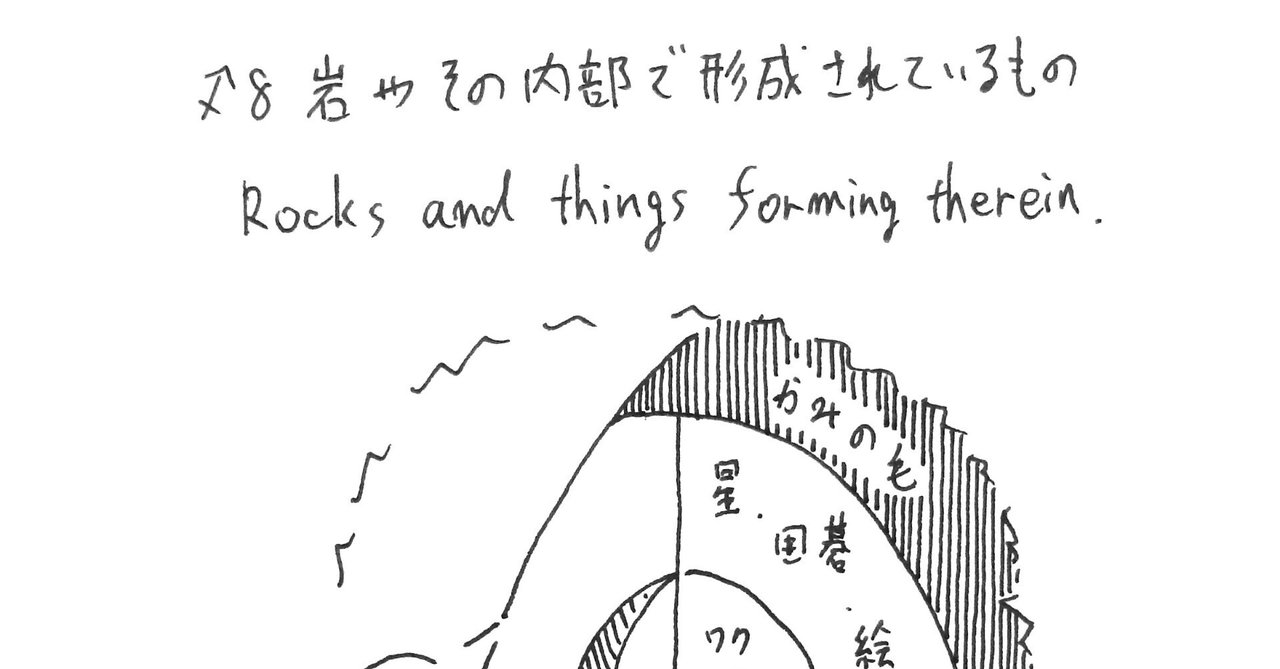 ♐8 岩やその内部で形成されているもの
Rocks and things forming therein.
かみの毛
星.
囲碁
.
ワク
絵